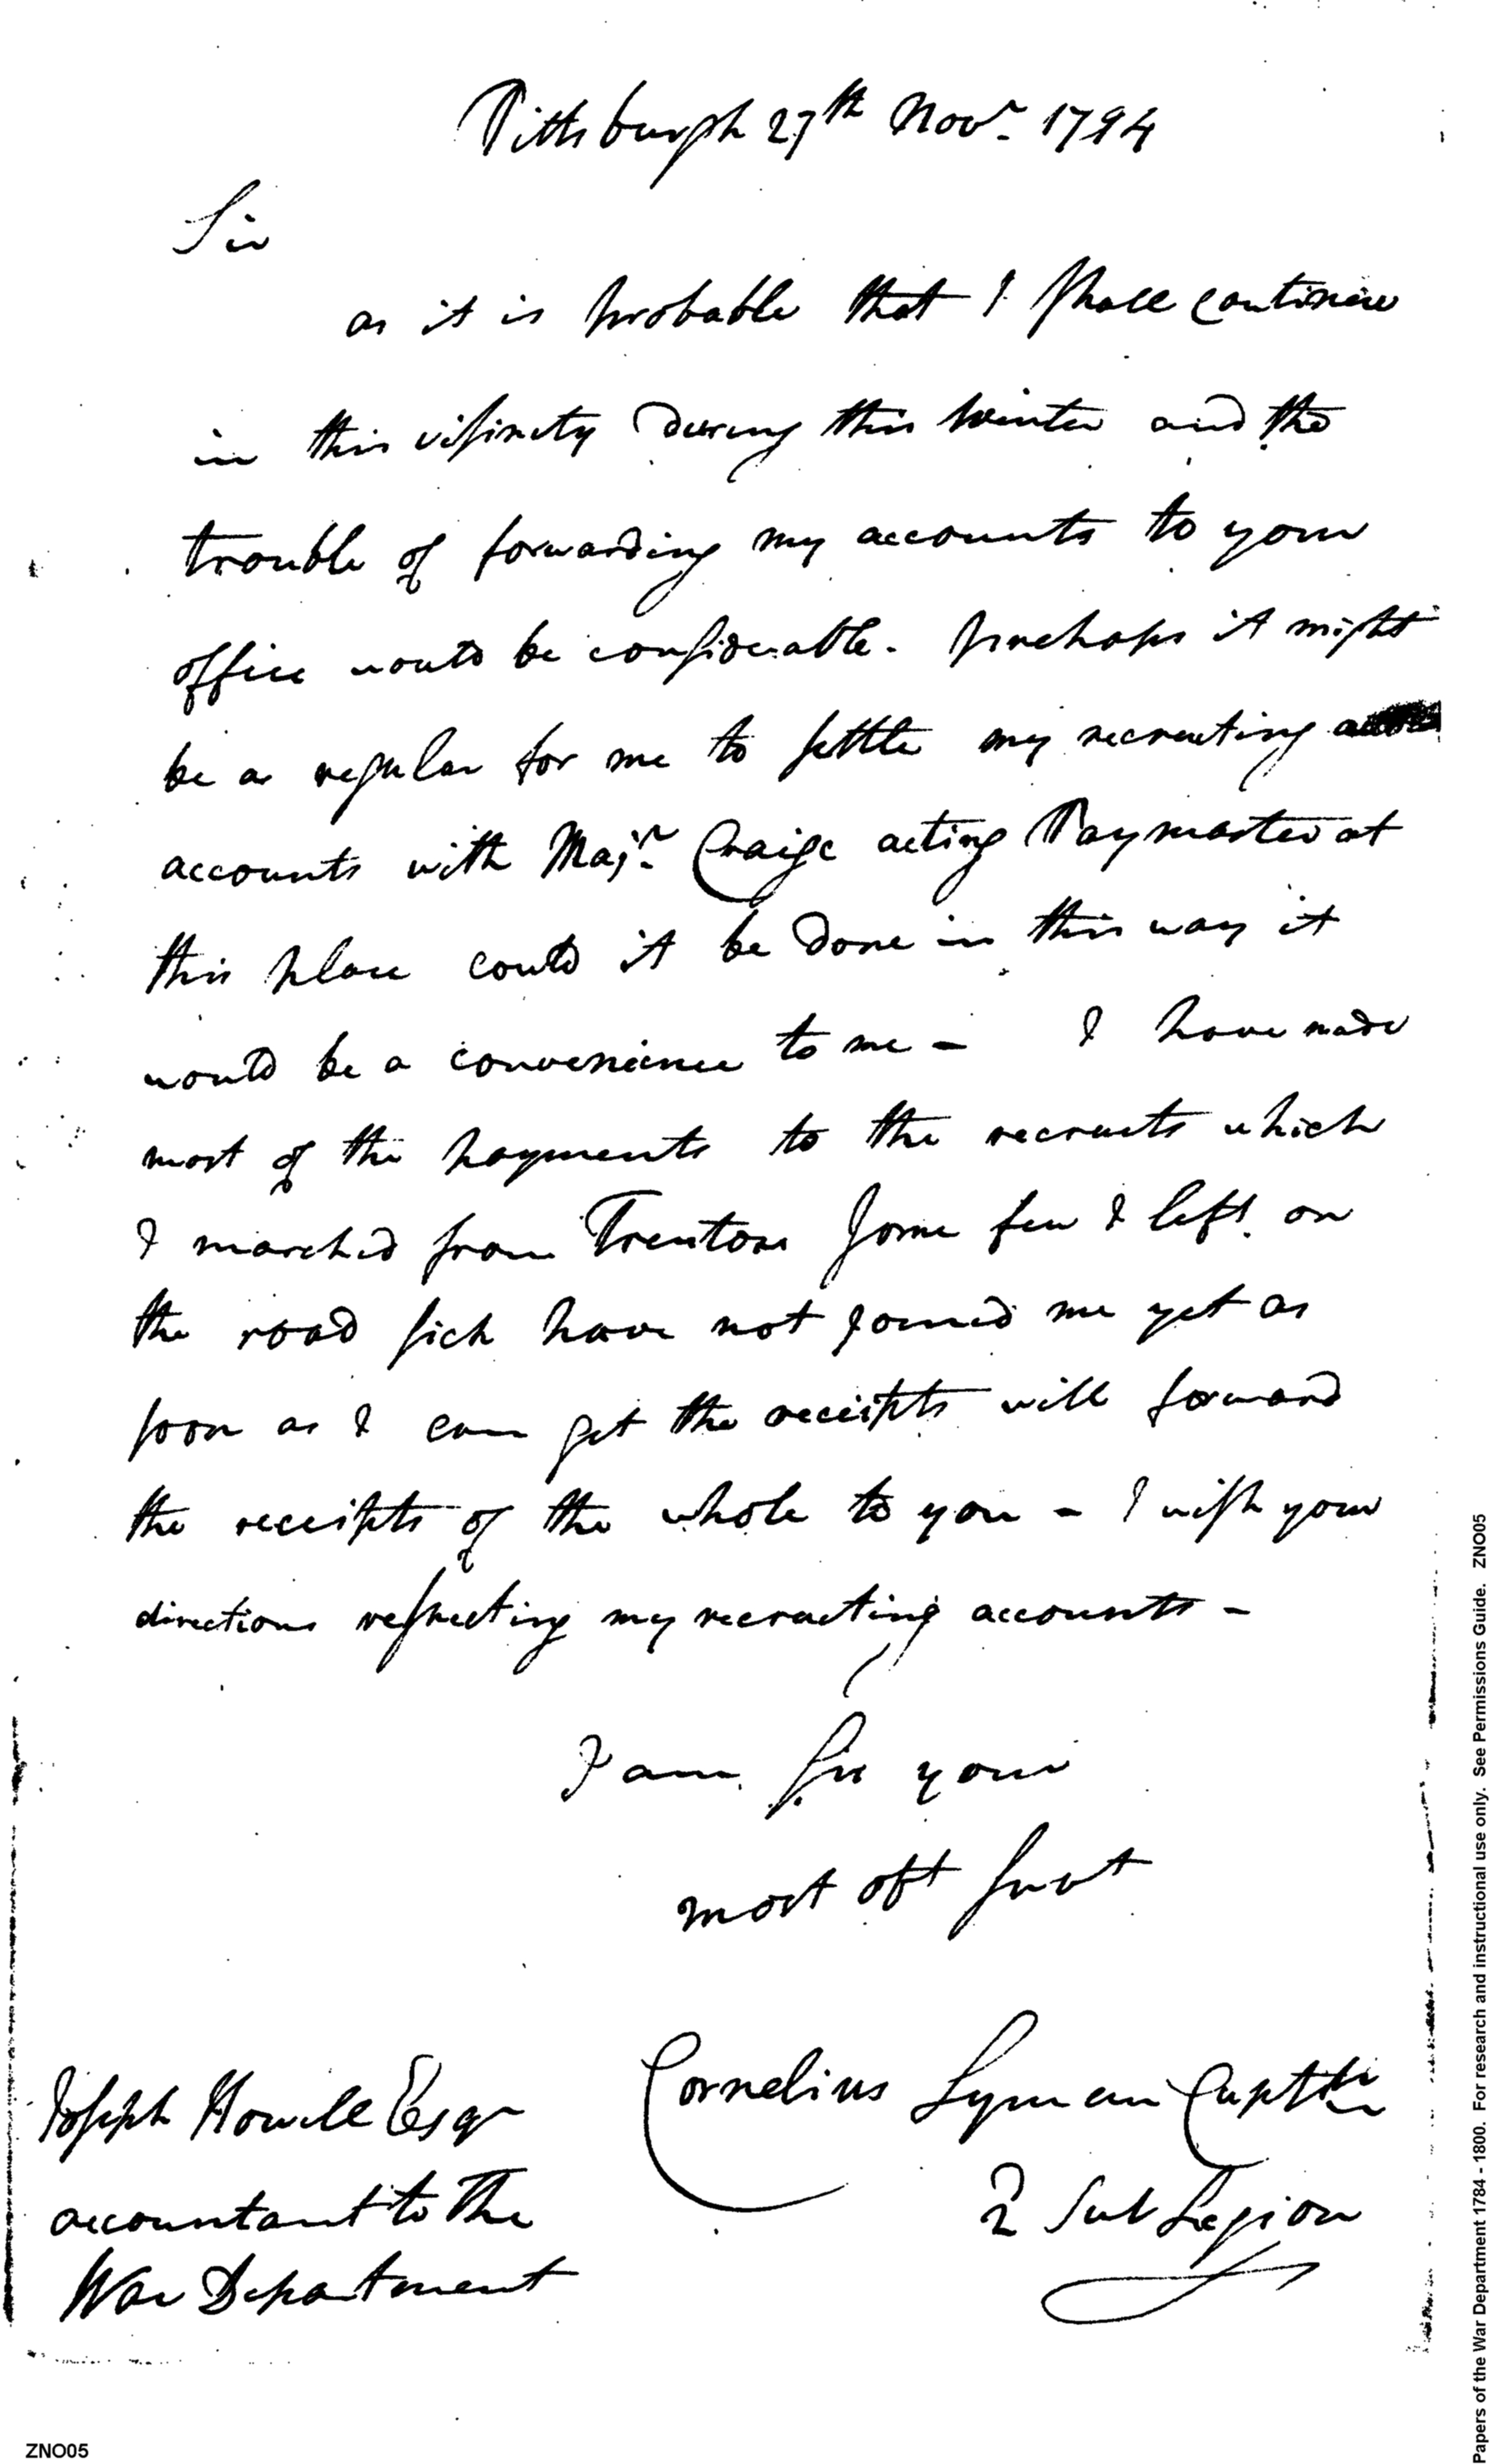 Pittsburgh 27th Novr 1794
Sir
as it is probable that I shall continue
in this visinity During this Winter and the
trouble of forwarding my accounts to your
office would be considerable. prehaps it might
be as regular for me to settle my recruiting
accounts with Majr. Craige acting Paymaster at
this place could it be Done in this way it
would be a convenience to me - I have made
most of the payments to the recruits which
I marched from Trenton some few I left on
the road sick have not joined me yet as
soon as I can get the receipts will forward
the receipts of the whole to you - I wish your
directions respecting my recruiting accounts -
I am Sir your
most obt servt
Cornelius Lyman Capt
2 Sub Legion
Joseph Howell Esqr
accountant to The
War Department
Papers of the War Department 1784 - 1800. For research and instructional use only. See Permissions Guide. ZNO05
ZNO05